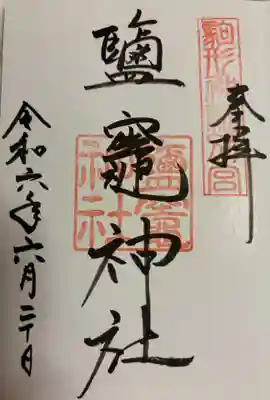 奉拝
鹽竈神社
鹽竈
神社
令和六年六月二十日